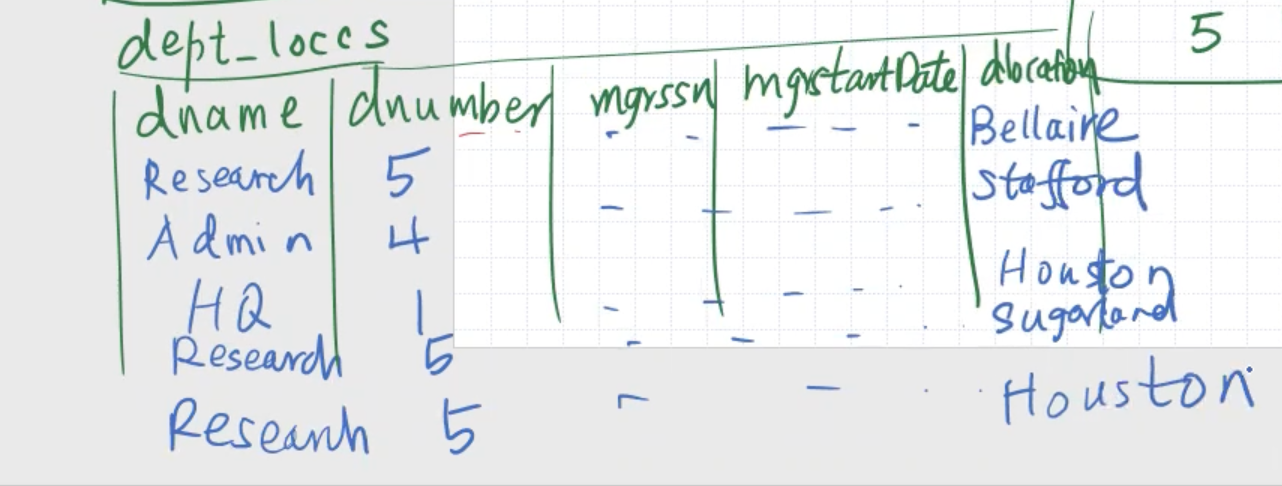 5
dept_loccs
dname dnumber mgrssn mgrstartDate dlocation
Research 5 - - - - - Bellaire
Admin 4 - - - - · Stafford
HQ 1 - - - - · Houston
Research 5 - - - · · Sugarland
Research 5 - - · · Houston